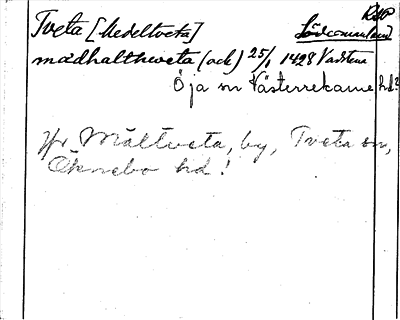 Tveta [Medeltveta] RAP
Södermanland
mædhalthweta (ack) 25/1 1428 Vadstena
Öja sn Västerrekarne hd?
Jfr Måltveta, by, Tveta sn,
Öknebo hd!